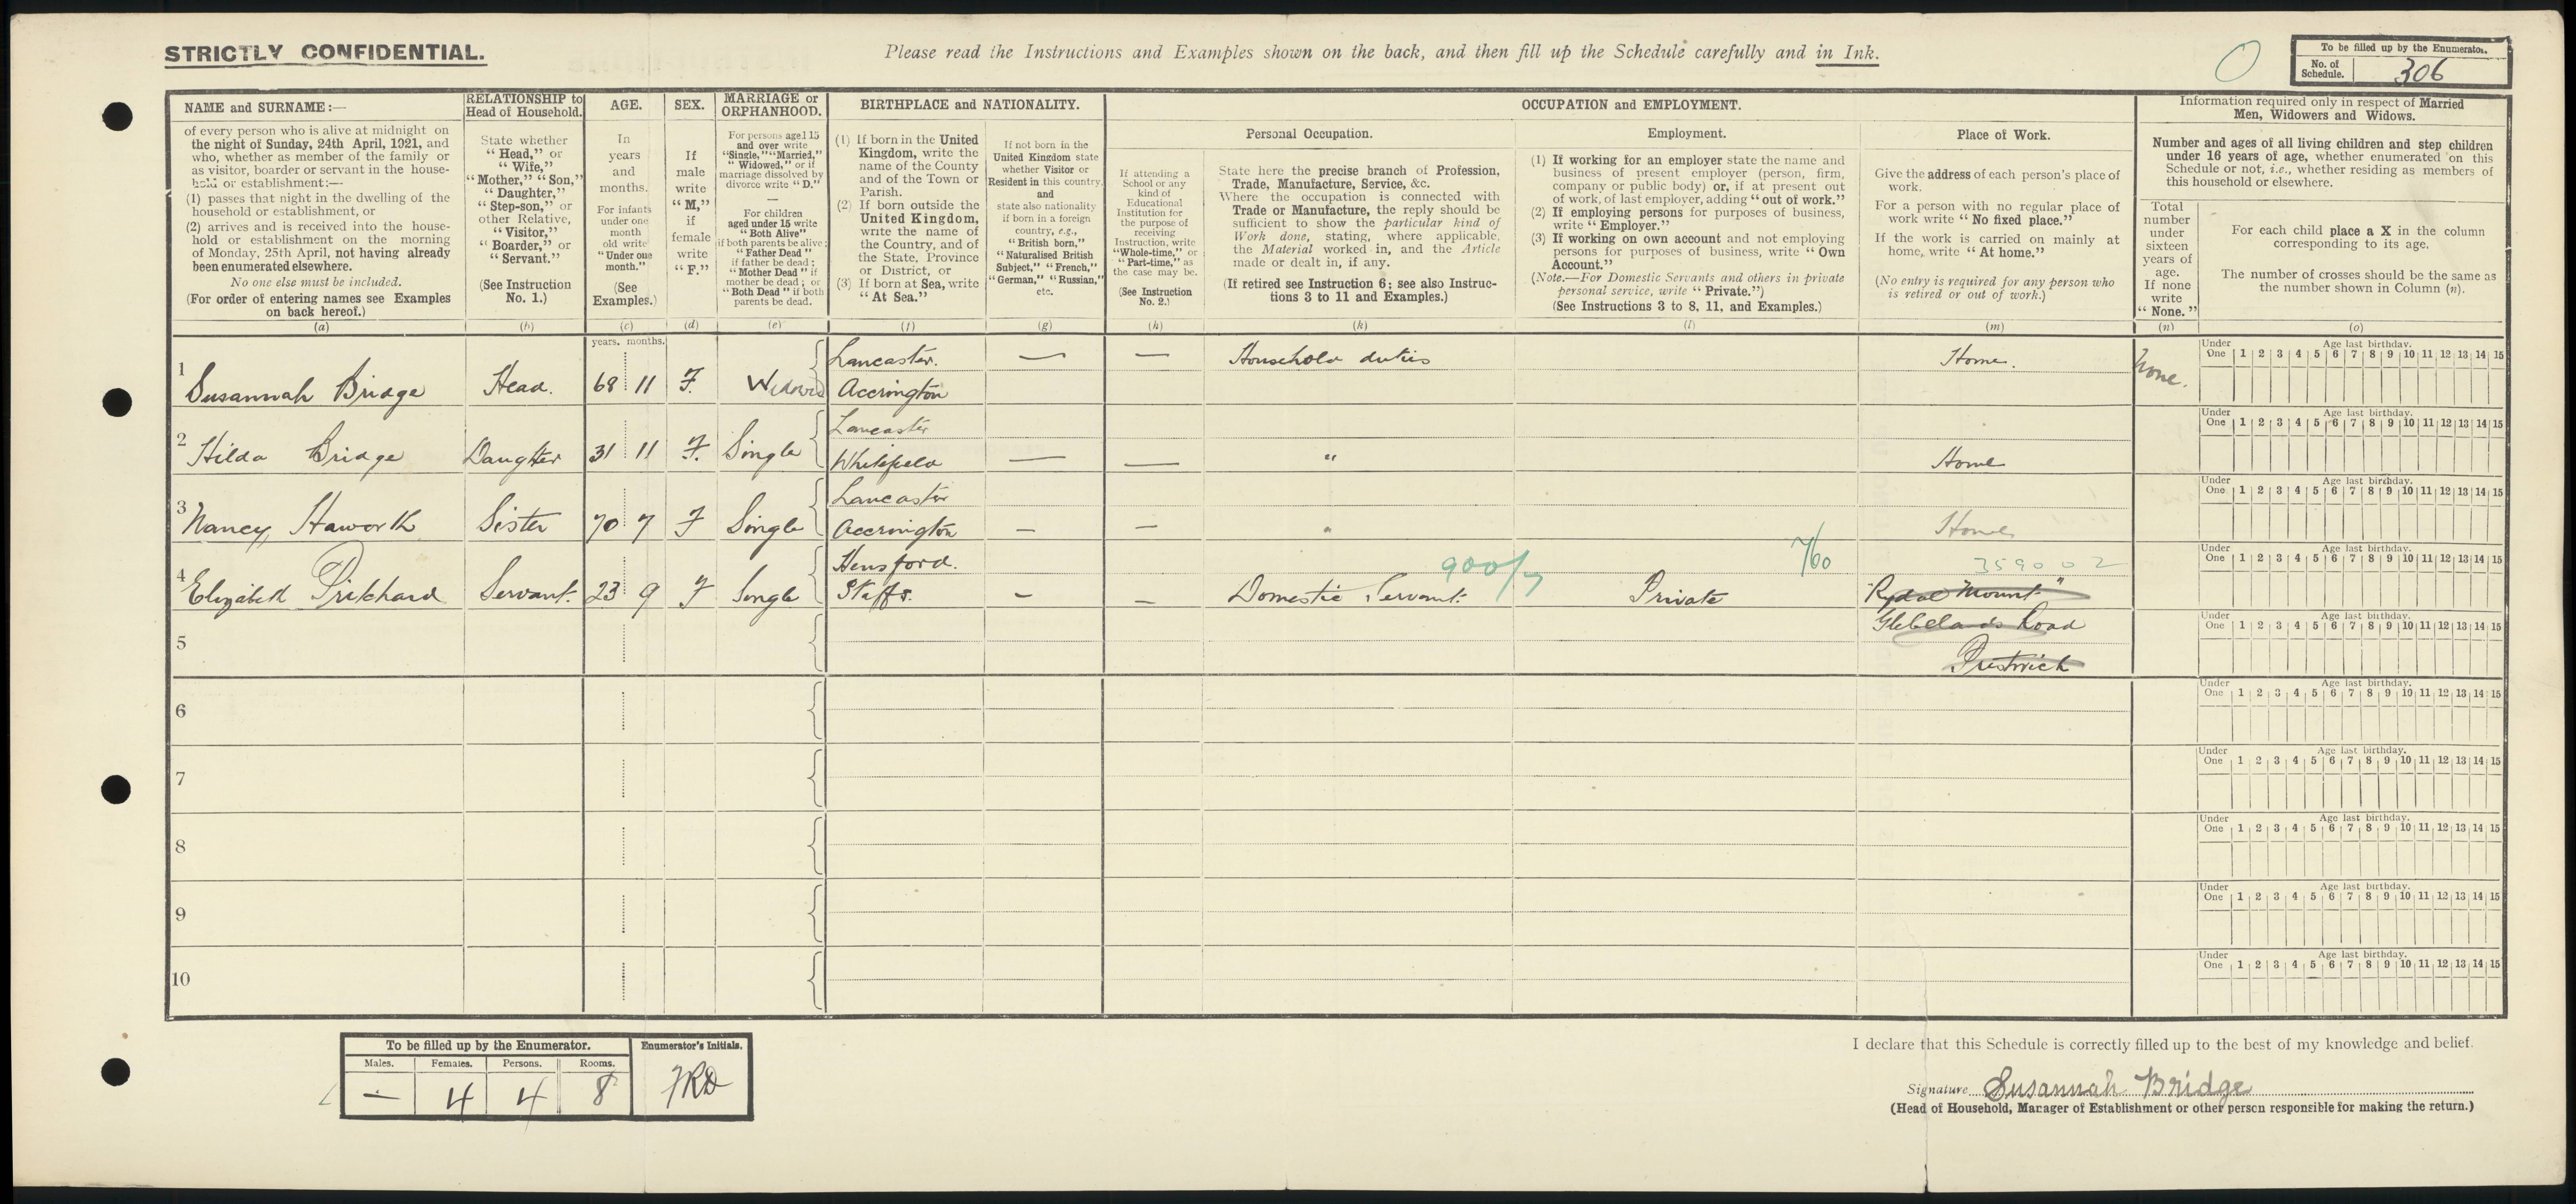 STRICTLY CONFIDENTIAL.
Please read the Instructions and Examples shown on the back, and then fill up the Schedule carefully and in Ink.
To be filled up by the Enumerator.
No. of Schedule. 306
NAME and SURNAME:—
of every person who is alive at midnight on
the night of Sunday, 24th April, 1921, and
who, whether as member of the family or
as visitor, boarder or servant in the house-
hold or establishment:—
(1) passes that night in the dwelling of the
household or establishment, or
(2) arrives and is received into the house-
hold or establishment on the morning
of Monday, 25th April, not having already
been enumerated elsewhere.
No one else must be included.
(For order of entering names see Examples
on back hereof.)
(a)
RELATIONSHIP to
Head of Household.
State whether
"Head," or
"Wife,"
"Mother," "Son,"
"Daughter,"
"Step-son," or
other Relative,
"Visitor,"
"Boarder," or
"Servant."
(See Instruction
No. 1.)
(b)
AGE.
In
years
and
months.
For infants
under one
month
old write
"Under one
month."
(See
Examples.)
(c)
SEX.
If
male
write
"M,"
if
female
write
"F."
(d)
MARRIAGE or
ORPHANHOOD.
For persons aged 15
and over write
"Single," "Married,"
"Widowed," or if
marriage dissolved by
divorce write "D."
—
For children
aged under 15 write
"Both Alive"
if both parents be alive;
"Father Dead"
if father be dead;
"Mother Dead" if
mother be dead; or
"Both Dead" if both
parents be dead.
(e)
BIRTHPLACE and NATIONALITY.
(1) If born in the United
Kingdom, write the
name of the County
and of the Town or
Parish.
(2) If born outside the
United Kingdom,
write the name of
the Country, and of
the State, Province
or District, or
(3) If born at Sea, write
"At Sea."
(f)
If not born in the
United Kingdom state
whether Visitor or
Resident in this country,
and
state also nationality
if born in a foreign
country, e.g.,
"British born,"
"Naturalised British
Subject," "French,"
"German," "Russian,"
etc.
(g)
OCCUPATION and EMPLOYMENT.
If attending a
School or any
kind of
Educational
Institution for
the purpose of
receiving
Instruction, write
"Whole-time," or
"Part-time," as
the case may be.
(See Instruction
No. 2.)
(h)
Personal Occupation.
State here the precise branch of Profession,
Trade, Manufacture, Service, &c.
Where the occupation is connected with
Trade or Manufacture, the reply should be
sufficient to show the particular kind of
Work done, stating, where applicable,
the Material worked in, and the Article
made or dealt in, if any.
(If retired see Instruction 6; see also Instruc-
tions 3 to 11 and Examples.)
(k)
Employment.
(1) If working for an employer state the name and
business of present employer (person, firm,
company or public body) or, if at present out
of work, of last employer, adding "out of work."
(2) If employing persons for purposes of business,
write "Employer."
(3) If working on own account and not employing
persons for purposes of business, write "Own
Account."
(Note.—For Domestic Servants and others in private
personal service, write "Private.")
(See Instructions 3 to 8, 11, and Examples.)
(l)
Place of Work.
Give the address of each person's place of
work.
For a person with no regular place of
work write "No fixed place."
If the work is carried on mainly at
home, write "At home."
(No entry is required for any person who
is retired or out of work.)
(m)
Information required only in respect of Married
Men, Widowers and Widows.
Number and ages of all living children and step children
under 16 years of age, whether enumerated on this
Schedule or not, i.e., whether residing as members of
this household or elsewhere.
Total
number
under
sixteen
years of
age.
If none
write
"None."
(n)
For each child place a X in the column
corresponding to its age.
The number of crosses should be the same as
the number shown in Column (n).
(o)
years. months.
1 Susannah Bridge Head. 68 11 F. Widowed Lancaster. Accrington — — Household duties Home. None.
Under One Age last birthday. 1 2 3 4 5 6 7 8 9 10 11 12 13 14 15
2 Hilda Bridge Daughter 31 11 F. Single Lancaster Whitefield — — " Home
Under One Age last birthday. 1 2 3 4 5 6 7 8 9 10 11 12 13 14 15
3 Nancy Haworth Sister 70 7 F Single Lancaster Accrington — — " Home
Under One Age last birthday. 1 2 3 4 5 6 7 8 9 10 11 12 13 14 15
4 Elizabeth Prichard Servant. 23 9 F Single Hensford. Staffs. — — Domestic Servant. 900/7 Private 760 359002 "Rydal Mount"
Under One Age last birthday. 1 2 3 4 5 6 7 8 9 10 11 12 13 14 15
Glebelands Road
5 Prestwich
Under One Age last birthday. 1 2 3 4 5 6 7 8 9 10 11 12 13 14 15
6
Under One Age last birthday. 1 2 3 4 5 6 7 8 9 10 11 12 13 14 15
7
Under One Age last birthday. 1 2 3 4 5 6 7 8 9 10 11 12 13 14 15
8
Under One Age last birthday. 1 2 3 4 5 6 7 8 9 10 11 12 13 14 15
9
Under One Age last birthday. 1 2 3 4 5 6 7 8 9 10 11 12 13 14 15
10
Under One Age last birthday. 1 2 3 4 5 6 7 8 9 10 11 12 13 14 15
To be filled up by the Enumerator. Enumerator's Initials.
Males. Females. Persons. Rooms.
— 4 4 8 FRD
I declare that this Schedule is correctly filled up to the best of my knowledge and belief.
Signature Susannah Bridge
(Head of Household, Manager of Establishment or other person responsible for making the return.)